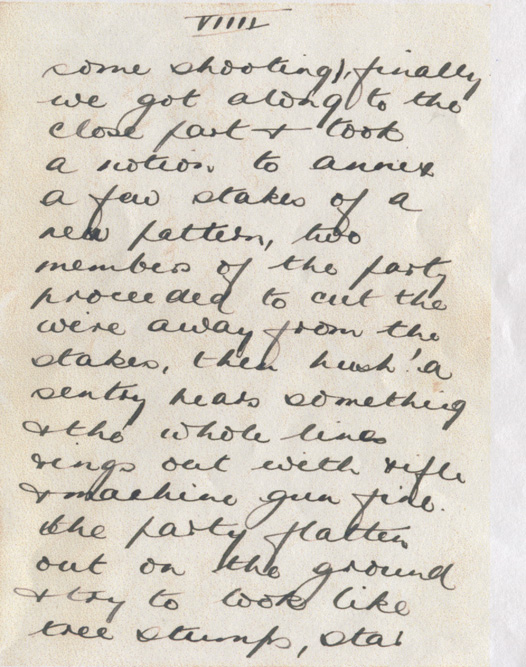 VIIII
some shooting), finally
we got along to the
close part & took
a notion to annex
a few stakes of a
new pattern, two
members of the party
proceeded to cut the
wire away from the
stakes, then hush! a
sentry hears something
& the whole lines
rings out with rifle
& machine gun fire.
the party flatten
out on the ground
& try to look like
tree stumps, star